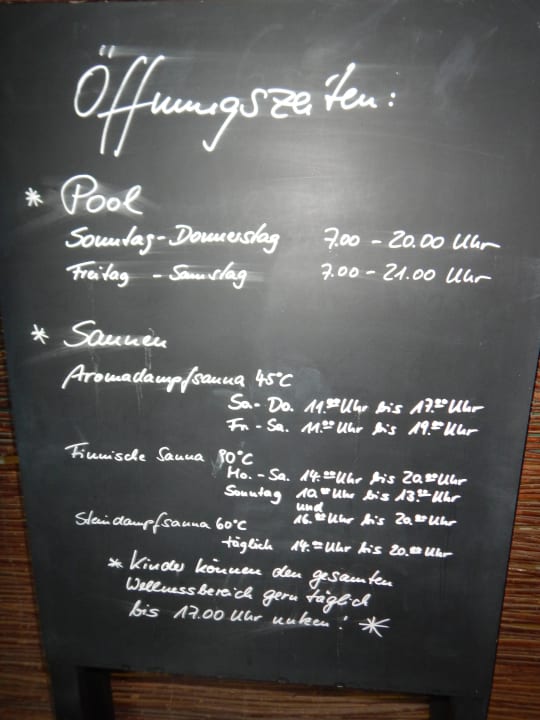 Öffnungszeiten:
* Pool
Sonntag-Donnerstag 7.00 - 20.00 Uhr
Freitag - Samstag 7.00 - 21.00 Uhr
* Saunen
Aromadampfsauna 45°C
So - Do. 11.00 Uhr bis 17.00 Uhr
Fr. - Sa. 11.00 Uhr bis 19.00 Uhr
Finnische Sauna 80°C
Mo. - Sa. 14.00 Uhr bis 20.00 Uhr
Sonntag 10.00 Uhr bis 13.00 Uhr
und
16.00 Uhr bis 20.00 Uhr
Steindampfsauna 60°C
täglich 14.00 Uhr bis 20.00 Uhr
* Kinder können den gesamten
Wellnessbereich gern täglich
bis 17.00 Uhr nutzen! *